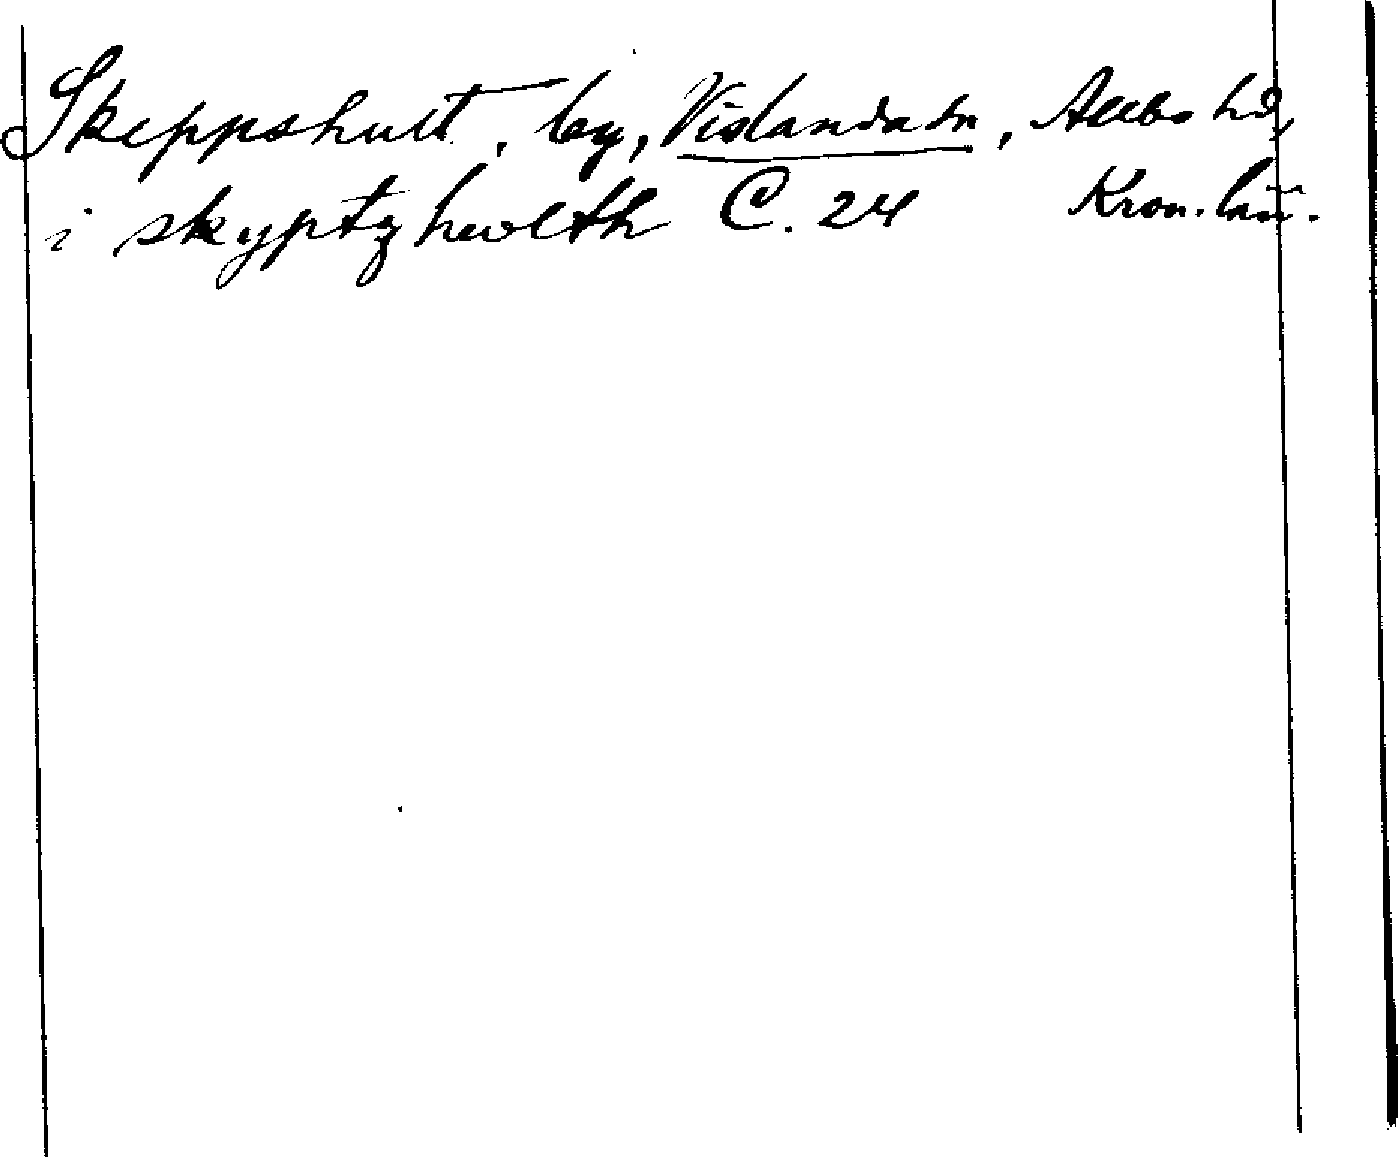 Skeppshult, by, Vislanda sn, Allbo hd,
i skyptzhwlth C. 24 Kron. län.